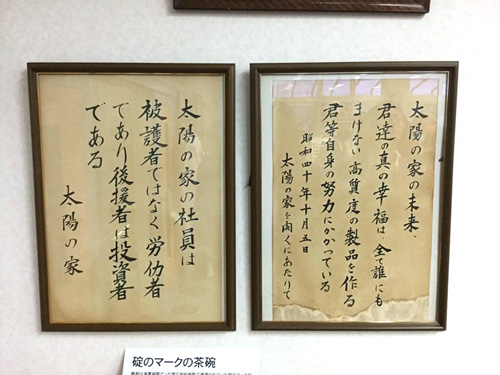 太陽の家の社員は
被護者ではなく労仂者
であり後援者は投資者
である
太陽の家
太陽の家の未来、
君達の真の幸福は、全て誰にも
まけない 高質度の製品を作る
君等自身の努力にかかっている
昭和四十年十月五日
太陽の家を開くにあたりて
碇のマークの茶碗